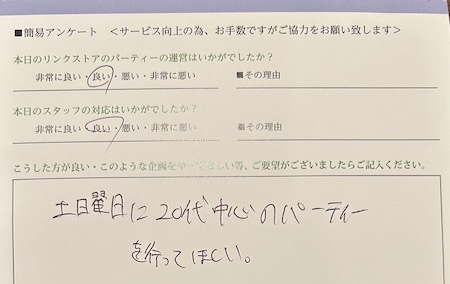 ■簡易アンケート ＜サービス向上の為、お手数ですがご協力をお願い致します＞
本日のリンクストアのパーティーの運営はいかがでしたか？
非常に良い・良い・悪い・非常に悪い ■その理由
本日のスタッフの対応はいかがでしたか？
非常に良い・良い・悪い・非常に悪い ■その理由
こうした方が良い・このような企画をやってほしい等、ご要望がございましたらご記入ください。
土日曜日に20代中心のパーティー
を行ってほしい。